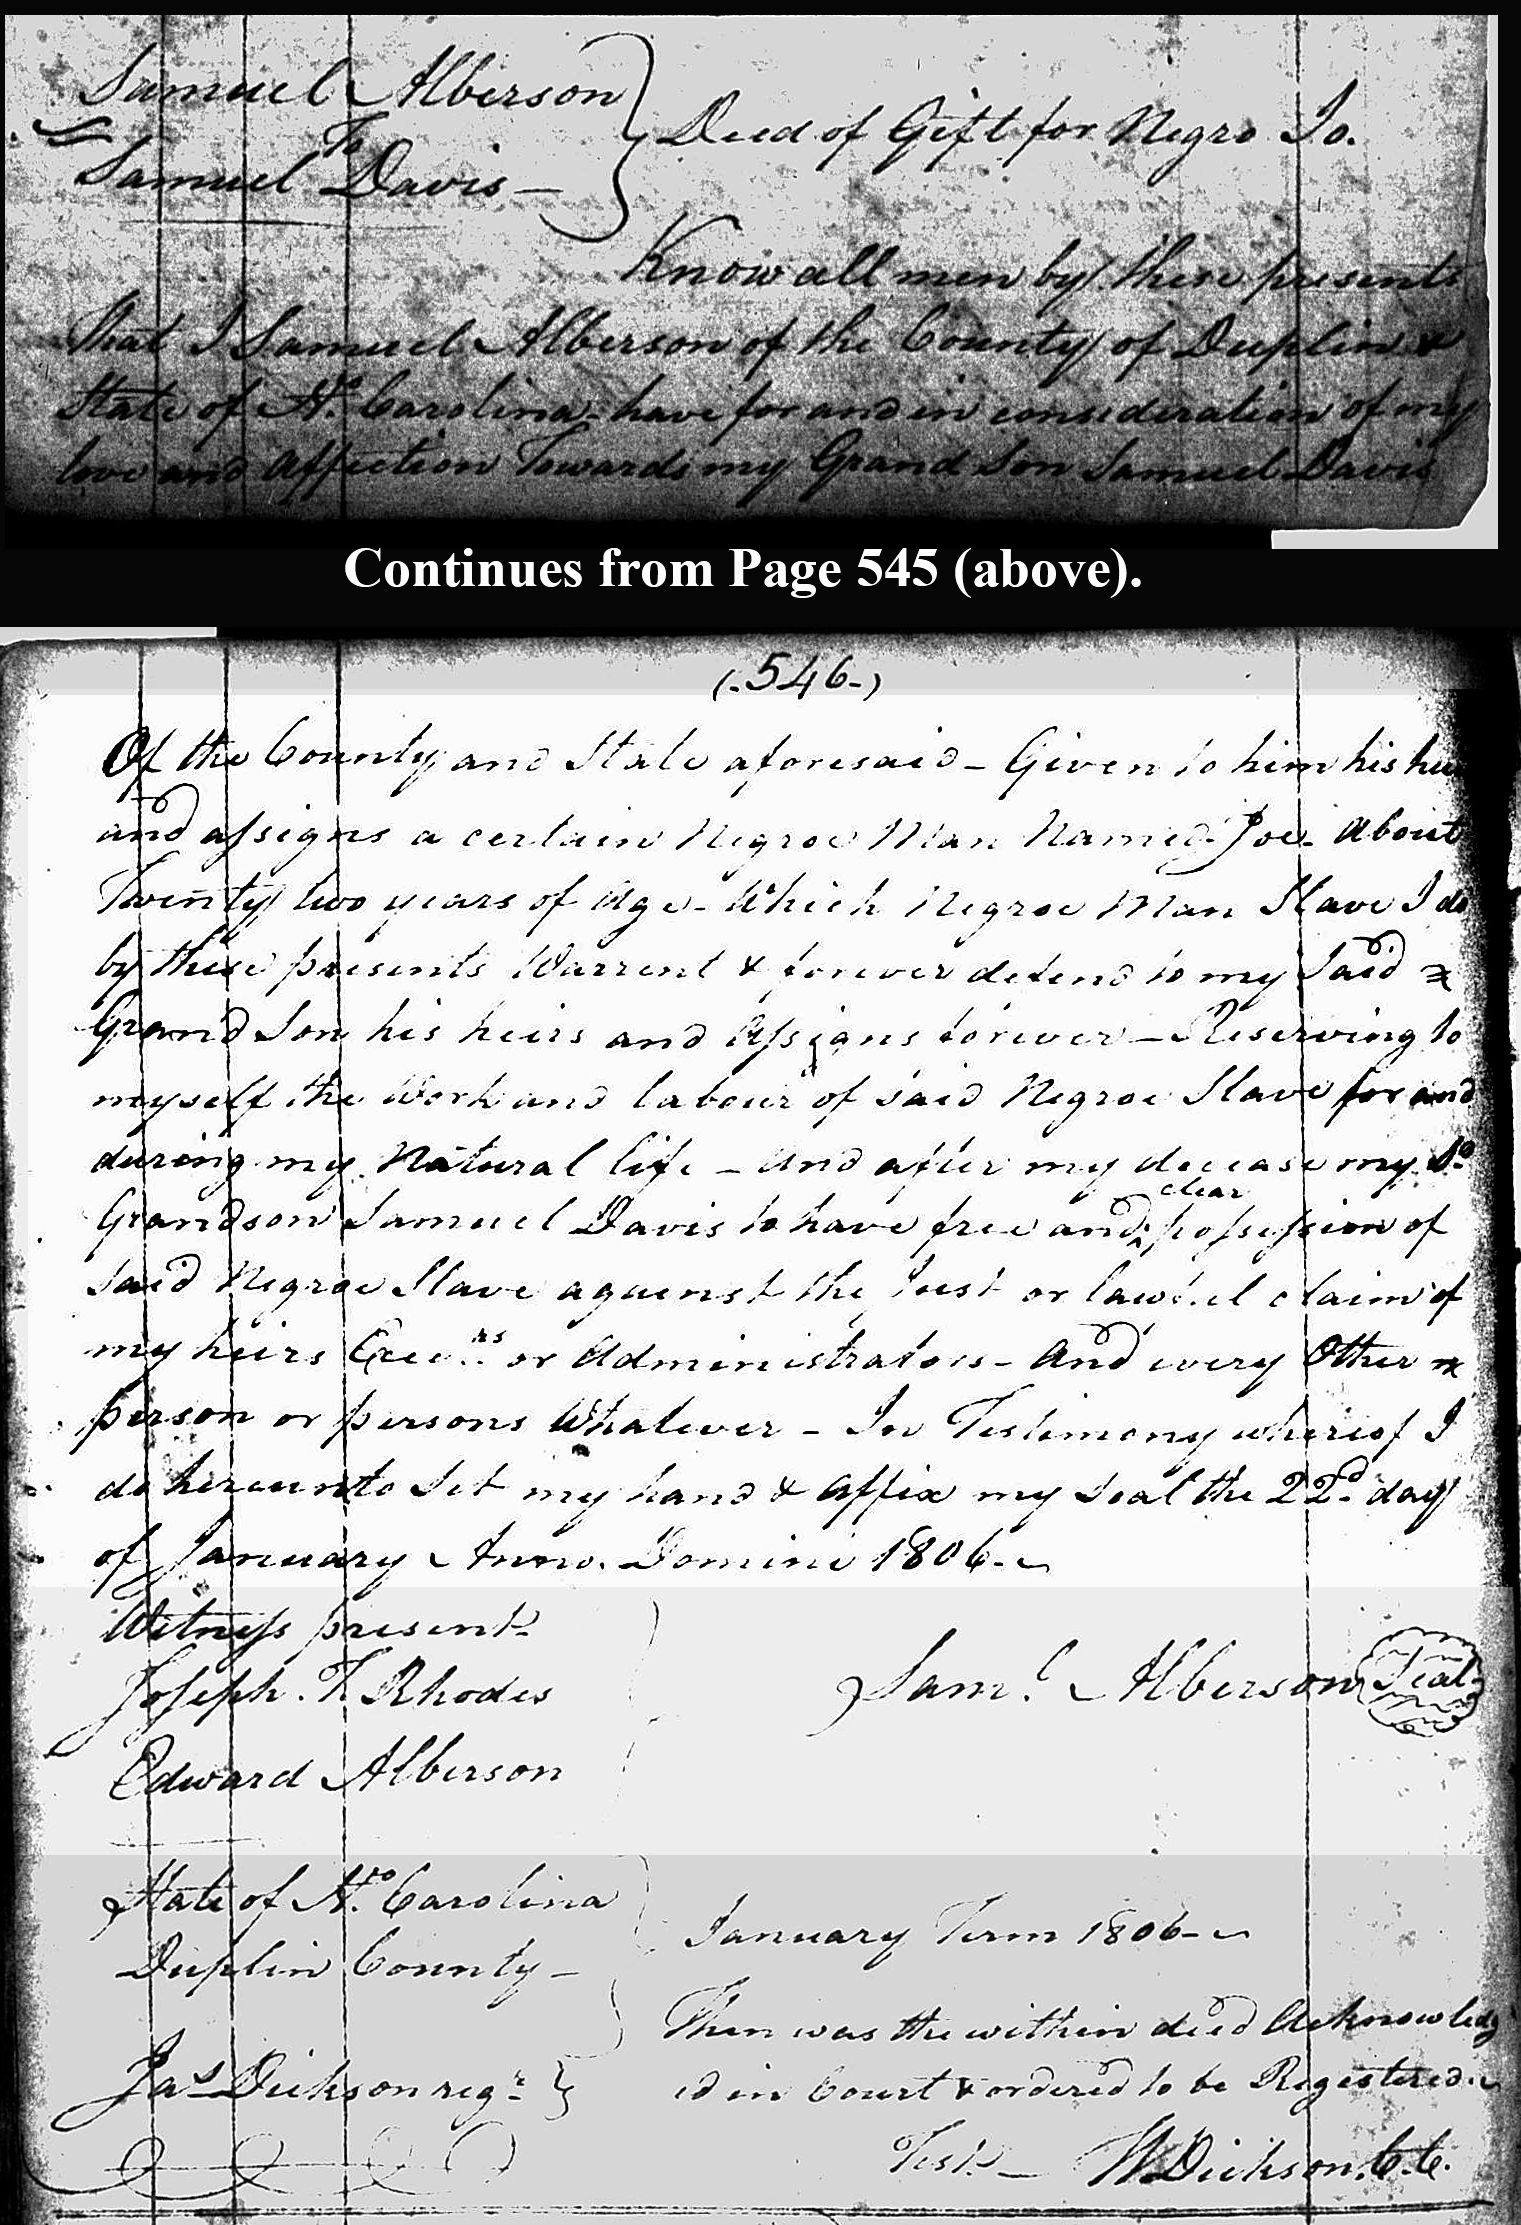 Samuel Alberson
To
Samuel Davis —
Deed of Gift for Negro Jo.
Know all men by these presents
that I Samuel Alberson of the County of Duplin &
State of No. Carolina - have for and in consideration of my
love and affection Towards my Grand Son Samuel Davis
Continues from Page 545 (above).
(.546-)
Of the County and State aforesaid - Given to him his
and assigns a certain Negroe Man Named Joe - About
Twenty two years of Age - Which Negroe Man Slave I do
by these presents Warrent & forever defend to my said
Grand Son his heirs and Assigns forever - Reserving to
myself the Work and labour of said Negroe Slave for and
during my Natural life - and after my decease my Sd
Grandson Samuel Davis to have free and clear possession of
said Negroe Slave against the Just or lawful claim of
my heirs Exec.rs or Administrators - And every Other
person or persons Whatever - In Testimony whereof I
do hereunto Set my hand & affix my seal the 22d. day
of January Anno. Domini 1806 -
Witness present
Joseph. T. Rhodes
Edward Alberson
Saml. Alberson Seal
State of No. Carolina
Duplin County -
January Term 1806 -
Then was the within deed Acknowledg
ed in Court & ordered to be Registered.
Jas Dickson regr.
Test. — W Dickson. C.C.